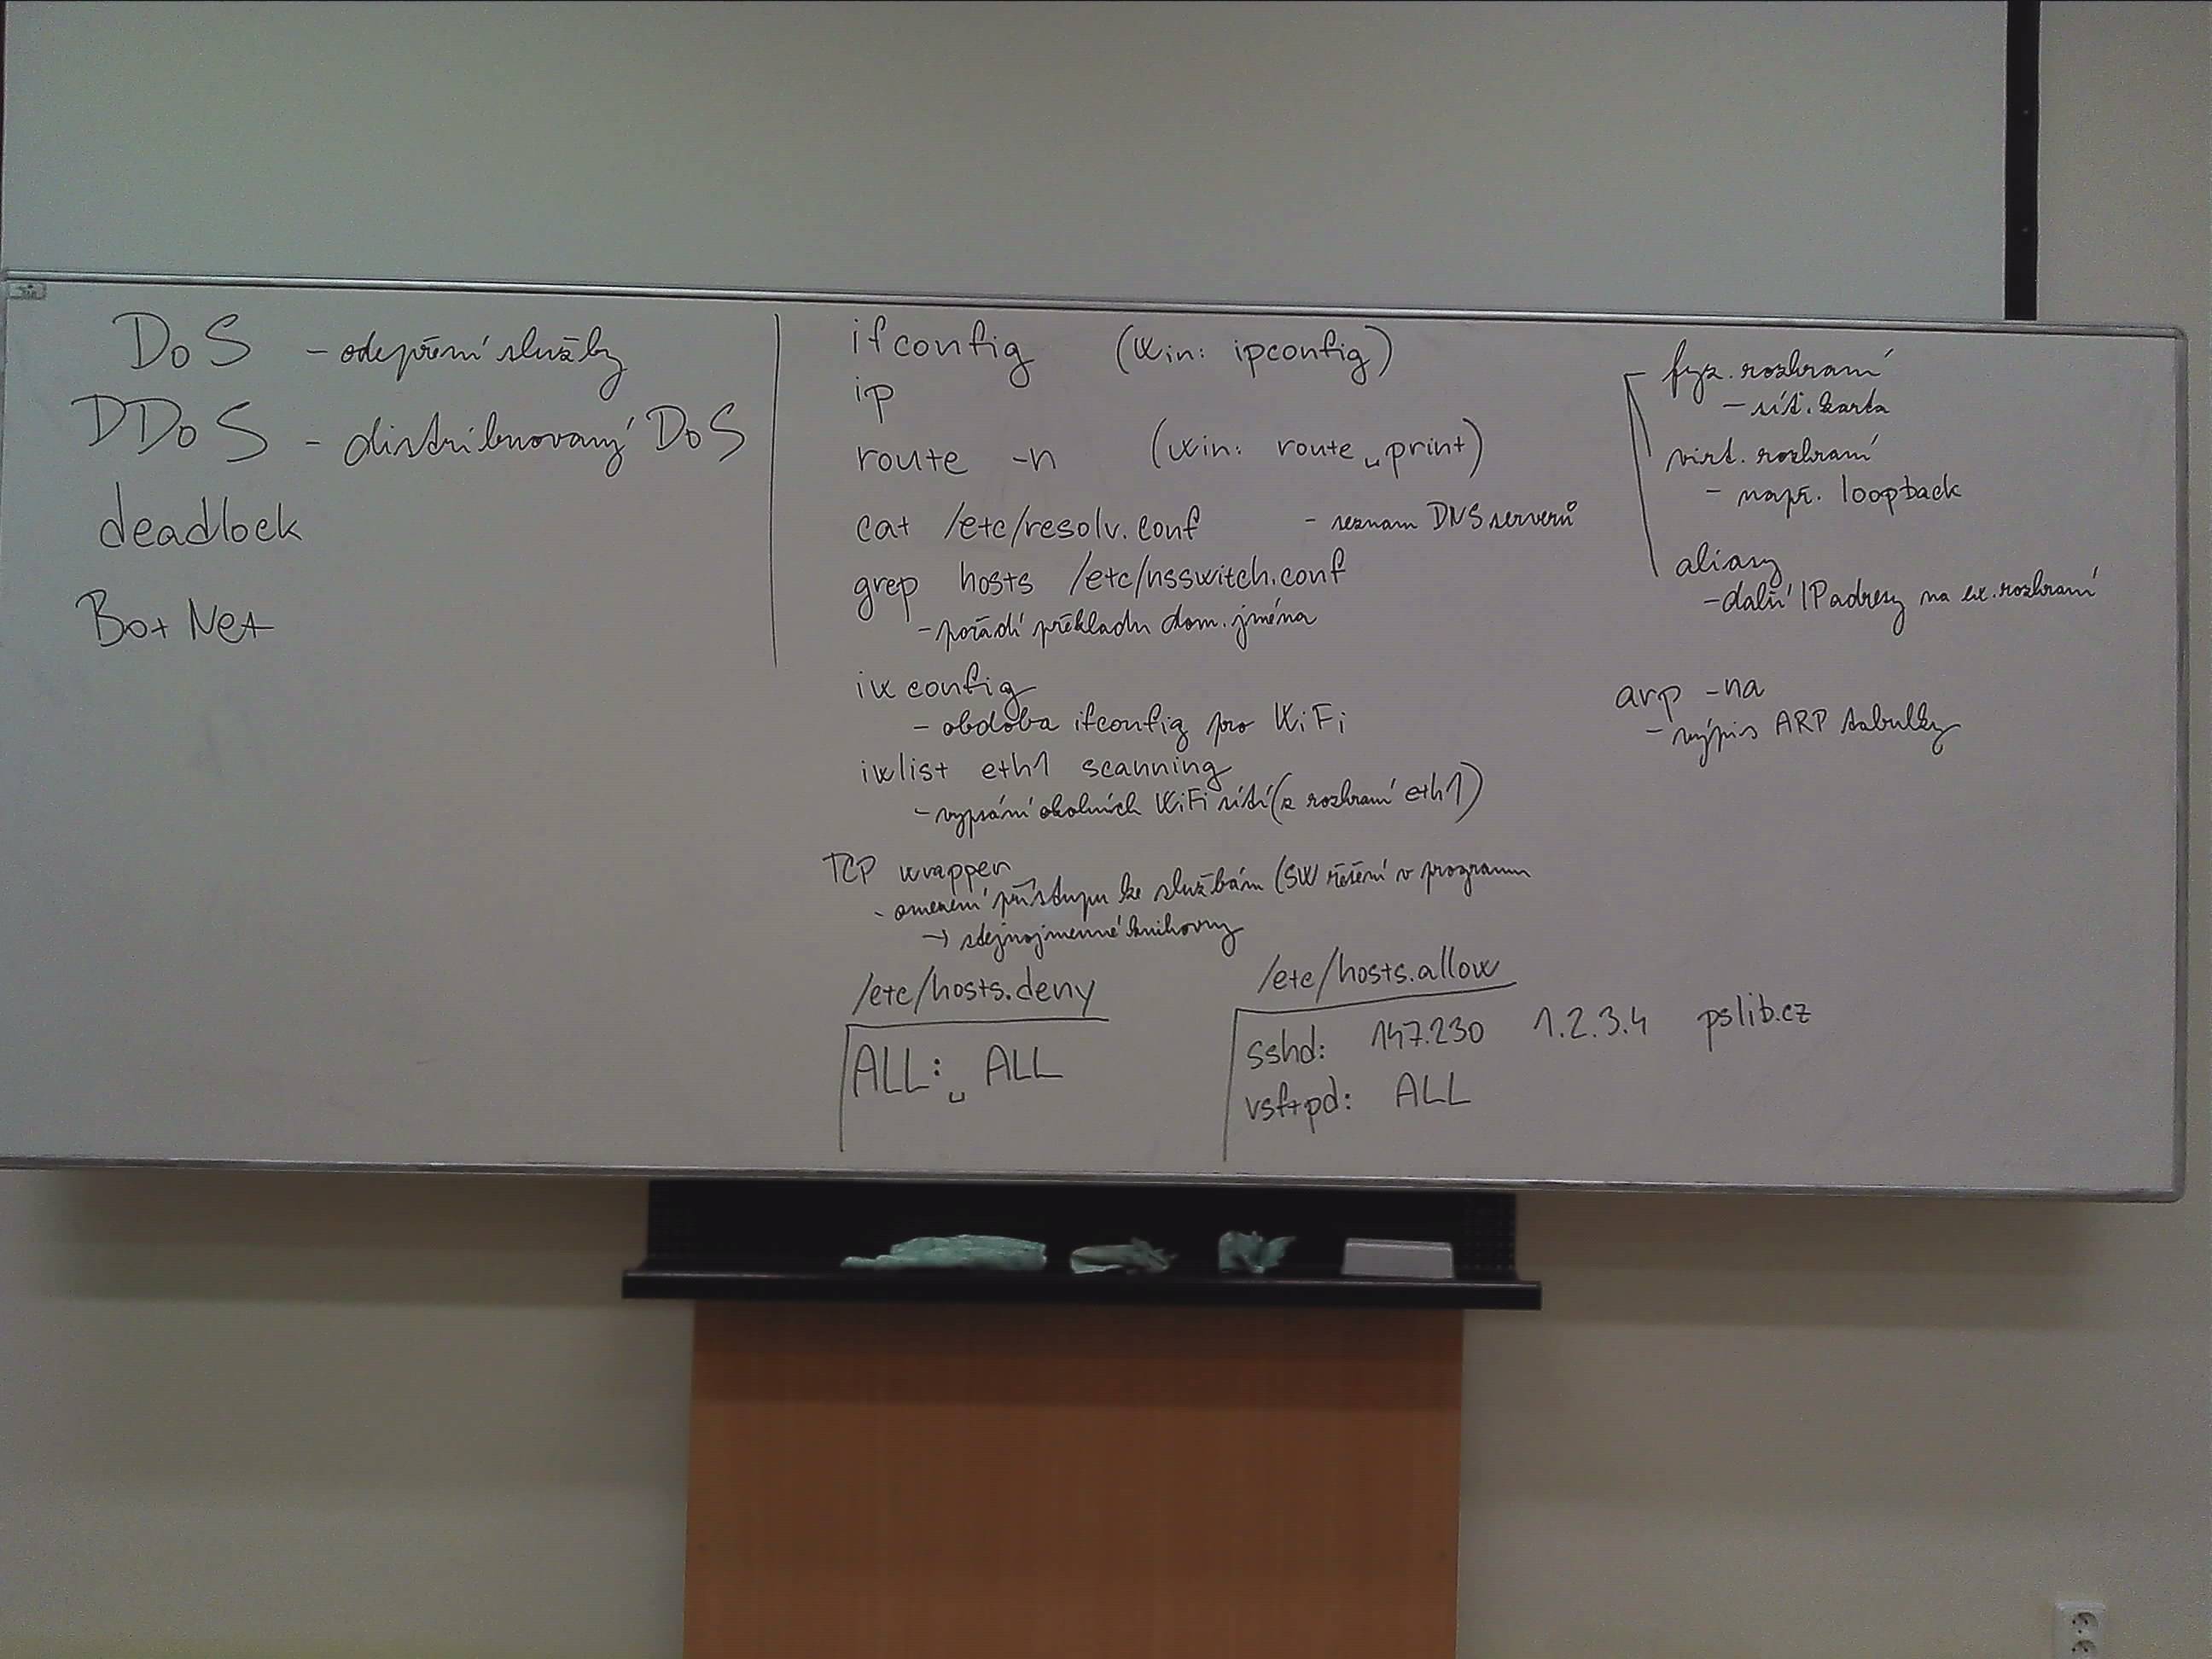 DoS - odepření služby
DDoS - distribuovaný DoS
deadlock
BotNet
ifconfig (Win: ipconfig)
ip
route -n (win: route␣print)
cat /etc/resolv.conf - seznam DNS serverů
grep hosts /etc/nsswitch.conf
- pořadí překladu dom. jména
iwconfig
- obdoba ifconfig pro WiFi
iwlist eth1 scanning
- vypsání okolních WiFi sítí (z rozhraní eth1)
TCP wrapper
- omezení přístupu ke službám (SW řešení v programu
→ stejnojmenné knihovny
/etc/hosts.deny
ALL:␣ ALL
/etc/hosts.allow
sshd: 147.230 1.2.3.4 pslib.cz
vsftpd: ALL
fyz. rozhraní
- síť. karta
virt. rozhraní
- např. loopback
aliasy
- další IP adresy na ex. rozhraní
arp -na
- výpis ARP tabulky